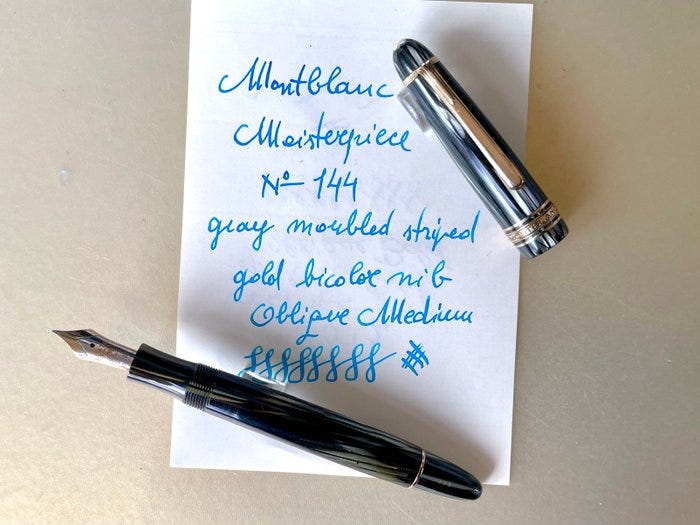 Montblanc
Meisterpiece
Nº 144
gray marbled striped
gold bicolor nib
Oblique Medium